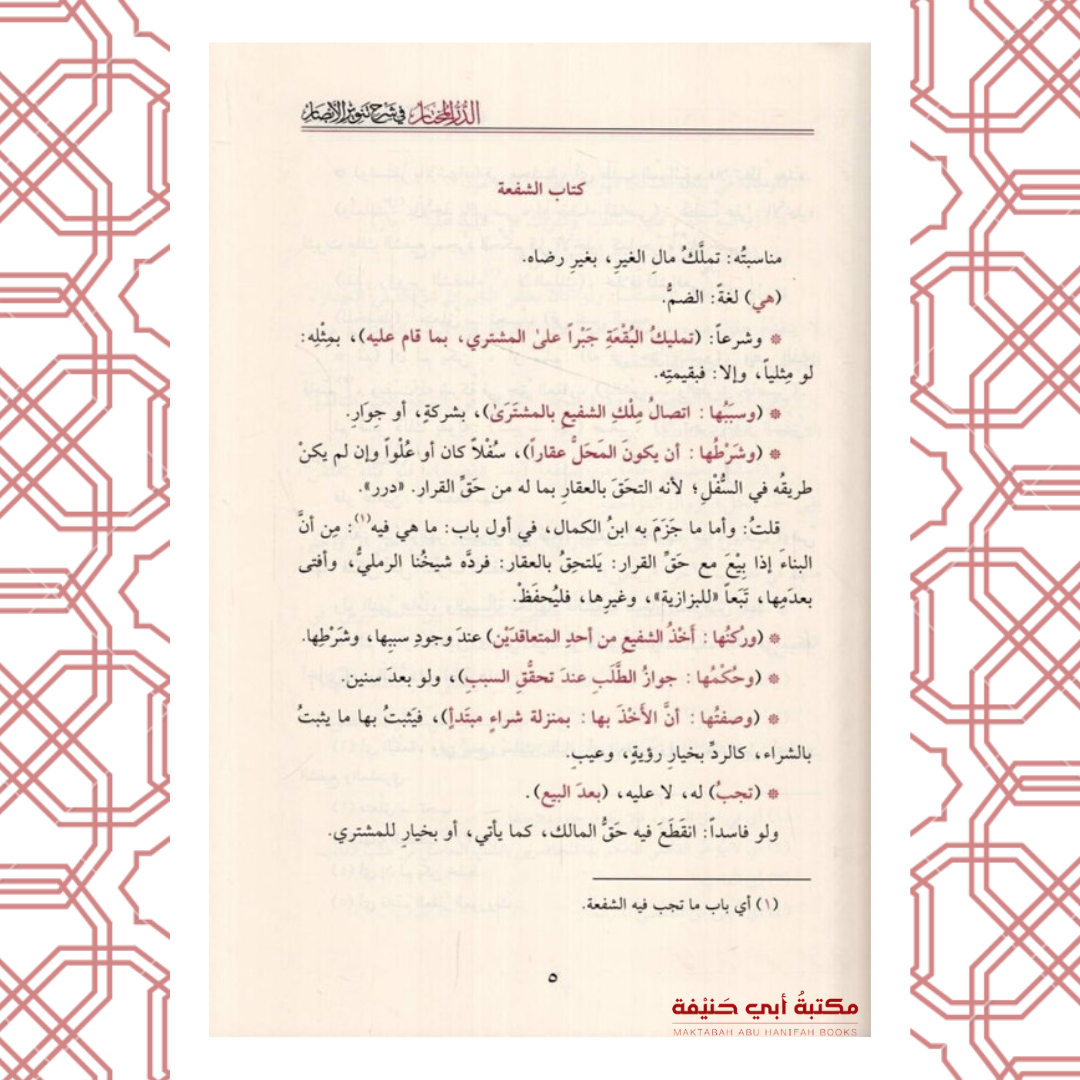 الدر المختار في شرح تنوير الأبصار
كتاب الشفعة
مناسبتُه: تملَّكُ مالِ الغيرِ، بغيرِ رضاه.
(هي) لغةً: الضمُّ.
* وشرعاً: (تمليكُ البُقْعَةِ جَبْراً علىٰ المشتري، بما قام عليه)، بمِثْلِه:
لو مِثلياً، وإلا: فبقيمتِه.
* (وسبَبُها: اتصالُ مِلْكِ الشفيعِ بالمشتَرَىٰ)، بشركةٍ، أو جوارٍ.
* (وشَرْطُها: أن يكونَ المَحَلُّ عقاراً)، سُفْلاً كان أو عُلْواً وإن لم يكنْ
طريقُه في السُّفْلِ؛ لأنه التحَقَ بالعقارِ بما له من حَقِّ القرار. «درر».
قلتُ: وأما ما جَزَمَ به ابنُ الكمال، في أول باب: ما هي فيه(١): مِن أنَّ
البناءَ إذا بِيْعَ مع حَقِّ القرار: يَلتحِقُ بالعقار: فردَّه شيخُنا الرمليُّ، وأفتى
بعدَمِها، تَبَعاً «للبزازية»، وغيرِها، فليُحفَظْ.
* (وركنُها: أَخْذُ الشفيعِ من أحدِ المتعاقدَيْن) عندَ وجودِ سببِها، وشَرْطِها.
* (وحُكْمُها: جوازُ الطَّلَبِ عندَ تحقُّقِ السببِ)، ولو بعدَ سنين.
* (وصفتُها: أنَّ الأَخْذَ بها: بمنزلة شراءٍ مبتَدأٍ)، فيَثبتُ بها ما يثبتُ
بالشراء، كالردِّ بخيارِ رؤيةٍ، وعيبٍ.
* (تجبُ) له، لا عليه، (بعدَ البيع).
ولو فاسداً: انقَطَعَ فيه حَقُّ المالك، كما يأتي، أو بخيارٍ للمشتري.
(١) أي باب ما تجب فيه الشفعة.
٥
مكتبةُ أبي حَنيْفة
MAKTABAH ABU HANIFAH BOOKS